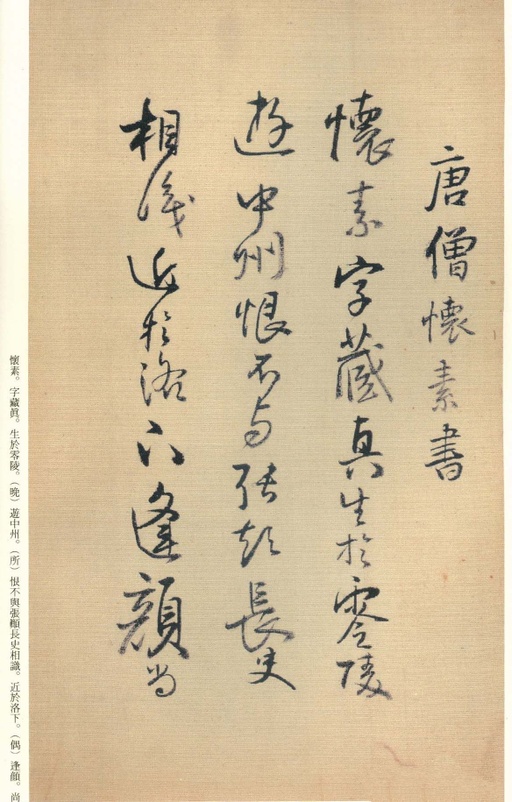 唐僧懷素書
懷素字藏真生於零陵
遊中州恨不与張顛長史
相識近於洛下逢顔尚
懷素。字藏眞。生於零陵。（晚）遊中州。（所）恨不與張顚長史相識。近於洛下。（偶）逢顔。尚